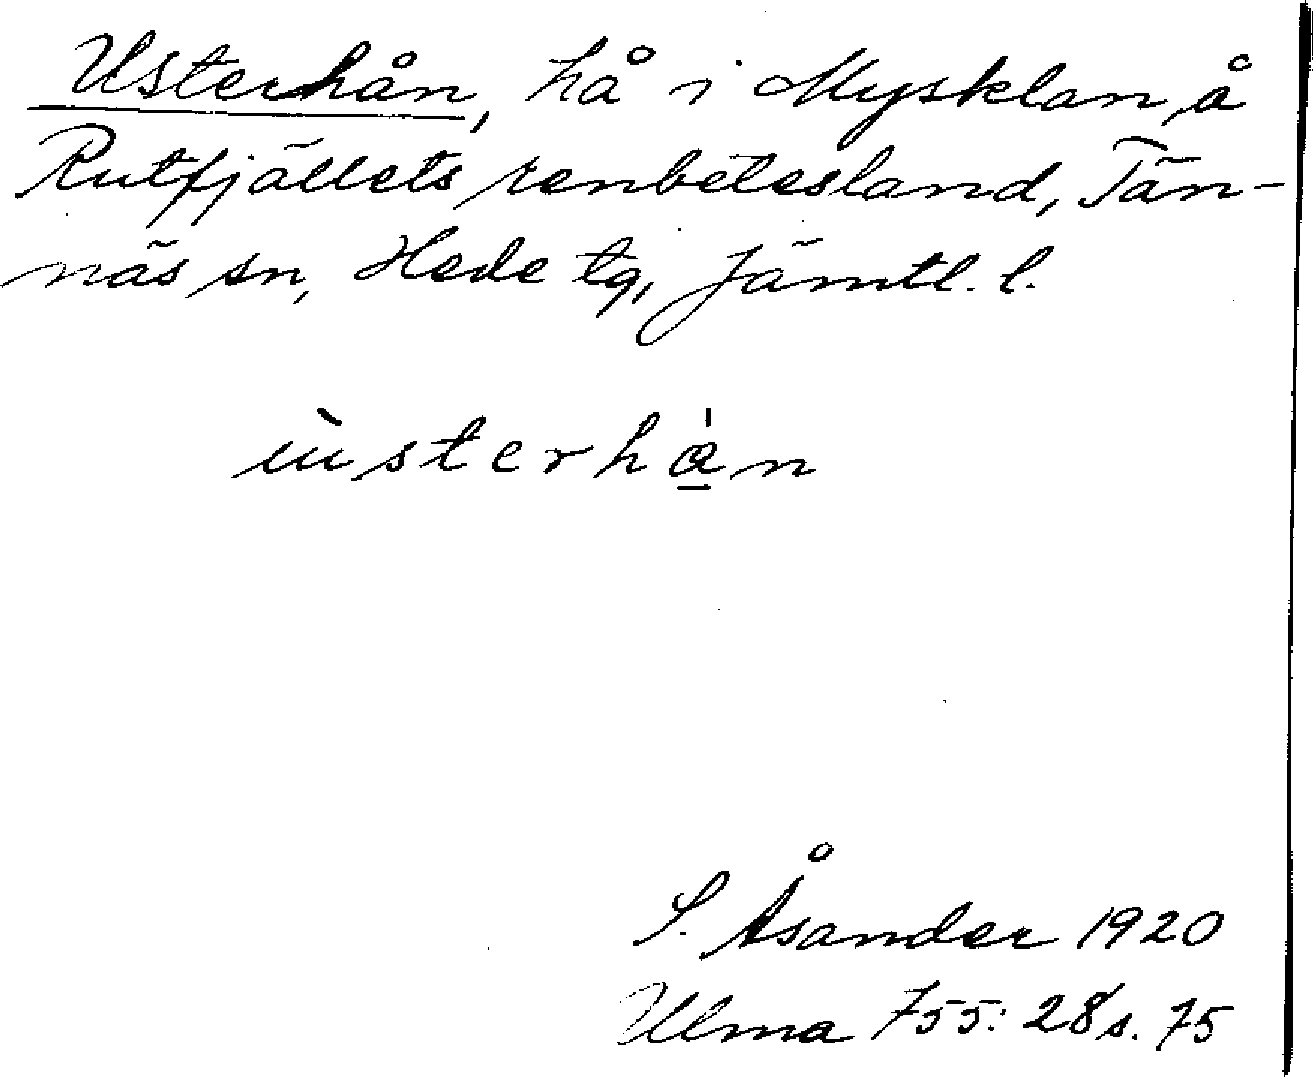 Usterhån, hå i Mysklan å
Rutfjällets renbetesland, Tän-
näs sn, Hede tg, Jämtl. l.
ùsterhα̩̍n
S. Åsander 1920
Ulma 755:28 s. 75